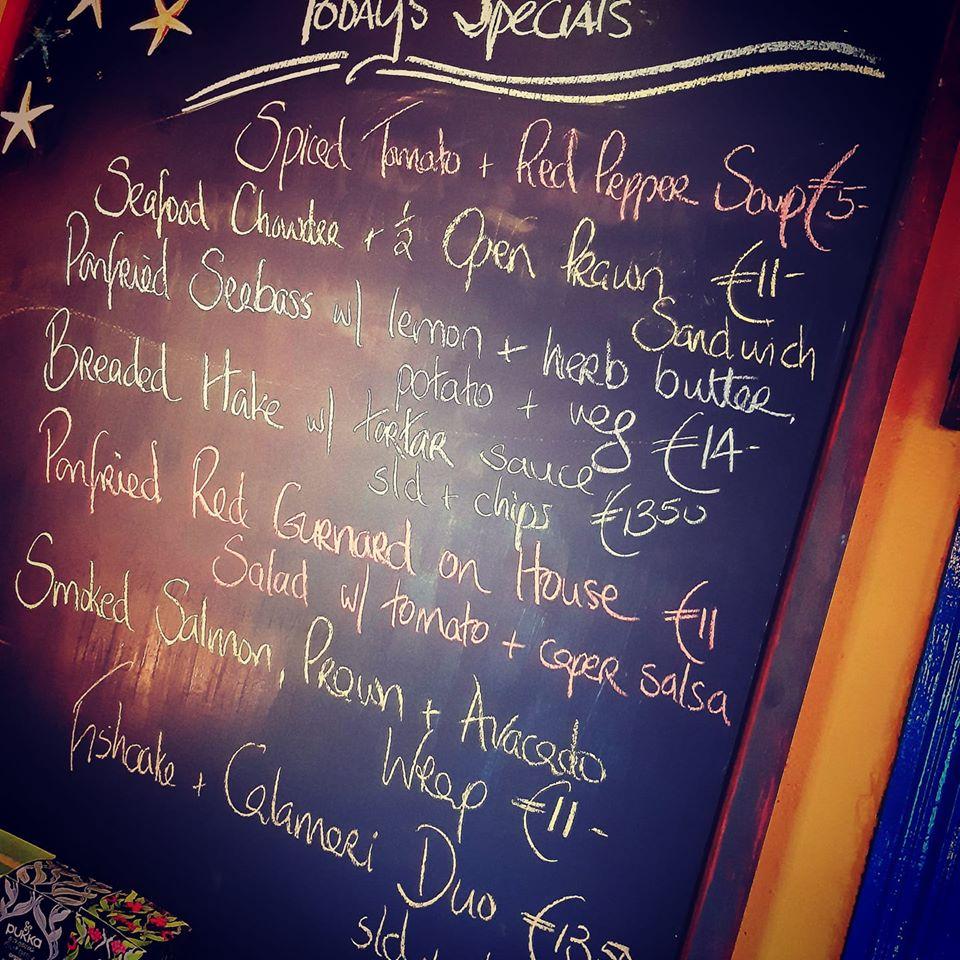 Today's Specials
Spiced Tomato + Red Pepper Soup €5-
Seafood Chowder + 1/2 Open Prawn €11-
Sandwich
Panfried Seabass w/ lemon + herb butter,
potato + veg €14-
Breaded Hake w/ tartar sauce,
sld + chips €1350
Panfried Red Gurnard on House €11
Salad w/ tomato + caper salsa
Smoked Salmon, Prawn + Avacado
Wrap €11-
Fishcake + Calamari Duo €1350
sld
pukka